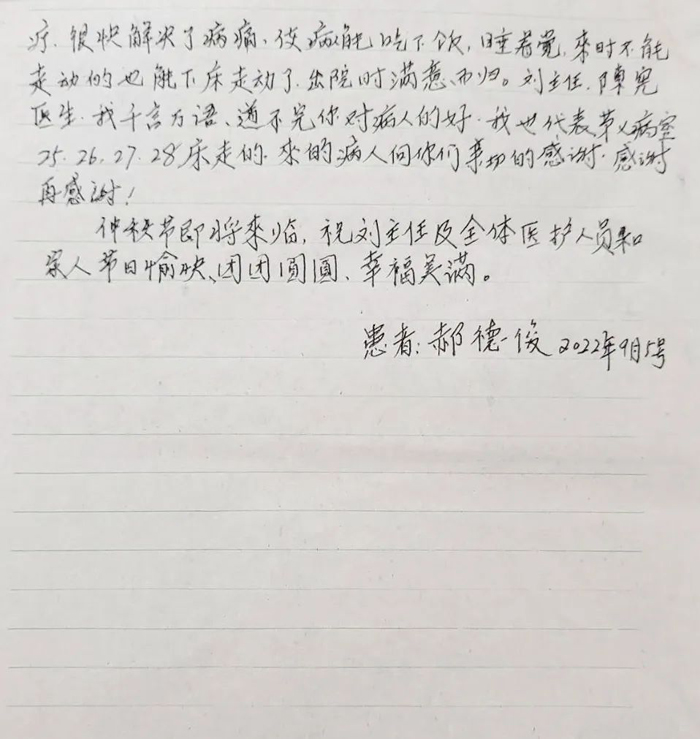 疗.很快解决了病痛、使病人能吃下饭,睡着觉,来时不能
走动的也能下床走动了.出院时满意而归。刘主任.陳宪
医生.我千言万语、道不完你对病人的好.我也代表第乂病室
25.26.27.28床走的.来的病人向你们亲切的感谢.感谢
再感谢!
仲秋节即将来临,祝刘主任及全体医护人员和
家人节日愉快、团团圆圓、幸福美满。
患者:郝德俊 2022年9月5号